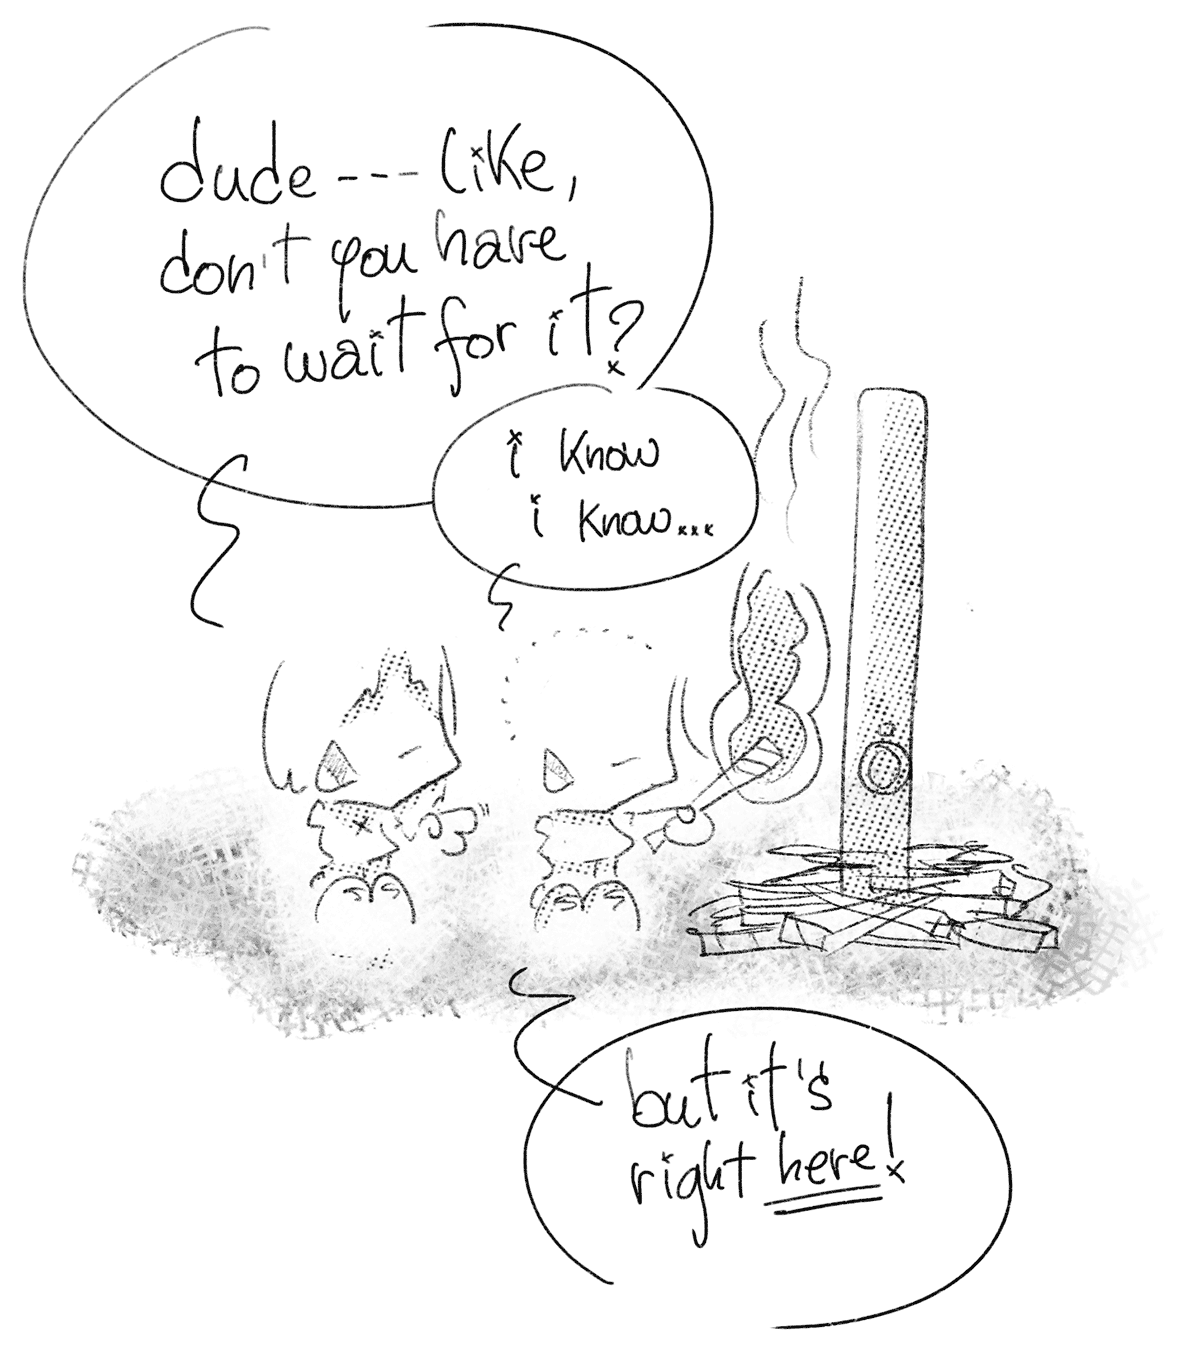 dude --- like,
don't you have
to wait for it?
i know
i know...
but it's
right here!